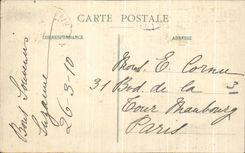 CARTE POSTALE
CORRESPONDANCE
ADRESSE
Bons Souvenirs
Suzanne
26-3-10
Mons. E. Cornu
31 Bvd. de la
Tour Maubourg
Paris